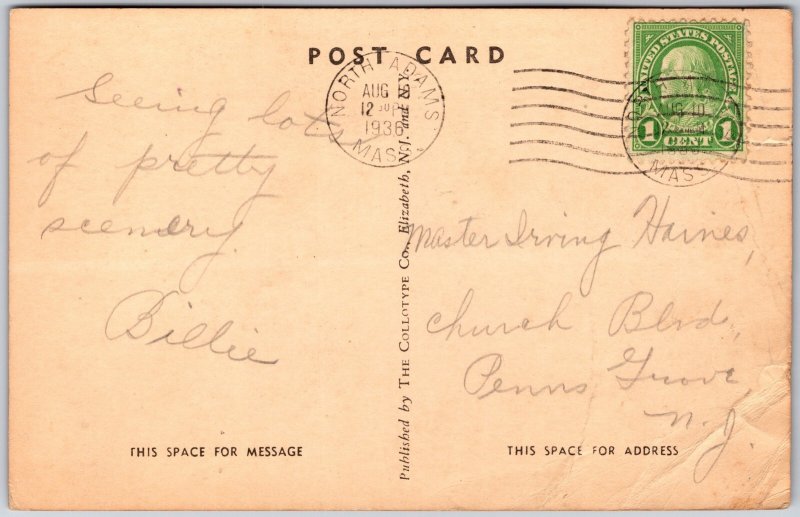 POST CARD
UNITED STATES POSTAGE
1 CENT 1
NORTH ADAMS
AUG
12
1936
MASS
Seeing lots
of pretty
scenery.
Billie
THIS SPACE FOR MESSAGE
Published by THE COLLOTYPE Co., Elizabeth, N.J. and N.Y.
Master Irving Haines,
Church Blvd,
Penns Grove
N.J.
THIS SPACE FOR ADDRESS